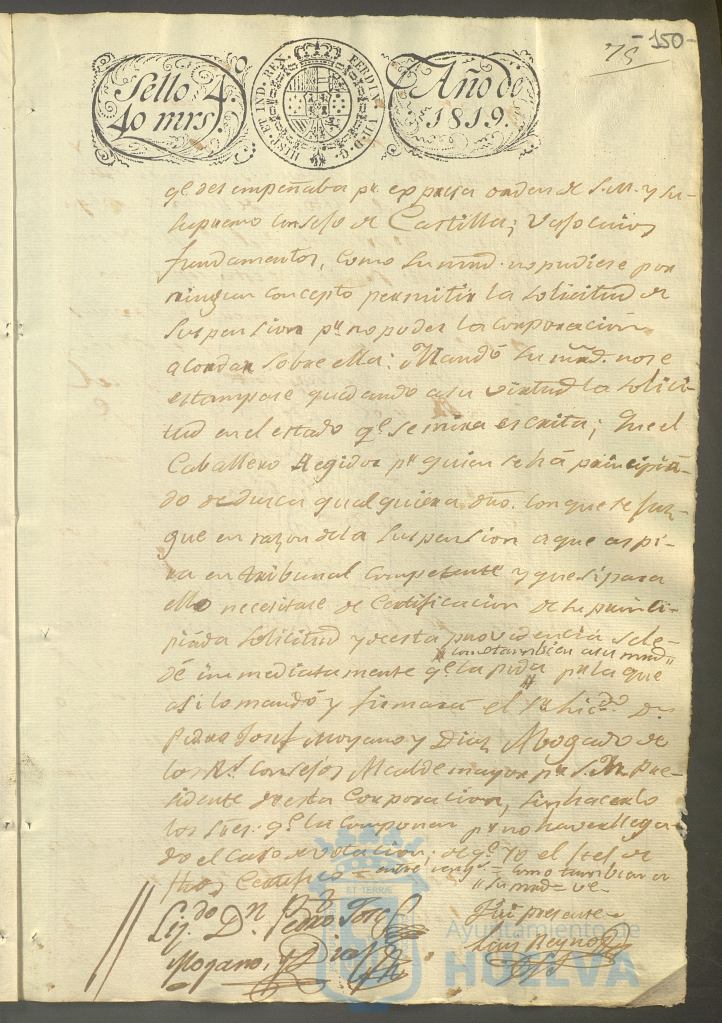 -150-
75
Sello 4.º
40 mrs.
HISP. ET IND. REX. FERDIN. VII. D. G.
Año de
1819.
qe. desempeñaba pr. expresa orden de S.M. y su
supremo Consejo de Castilla; vajo cuios
fundamentos, como su mrd. no pudiese por
ningun concepto permitir la solicitud de
suspension pr. no poder la corporacion
acordar sobre ella: Mandó su mrd. no se
estampase quedando a su virtud la solici-
tud en el estado qe. se mira escrita; que el
Caballero Regidor pr. quien se há principia-
do deduzca qualquiera dro. con que se juz-
gue en razon de la suspension a que aspi-
ra en tribunal competente y que si para
ello necesitare de Certificacion de su princi-
piada solicitud y de esta providencia se le
como tambien a su mrd
dé inmediatamente qe. la pida pr. la que
asi lo mandó y firmará el Sr. Licdo. Dn.
Pedro Josef Moyano y Diaz Abogado de
los Rs. Consejos Alcalde mayor pr. S.M. pre-
sidente de esta Corporacion, sin hacerlo
los Sres. qe. la componen pr. no haver llega-
do el caso de votacion; de qe. Yo el
Certifico = entre reng.s = como tambien a
su mrd = ve
Liz.do Dn. Pedro Josef
Moyano y Diaz
Fui presente
Luis Reyno
ET TERRÆ
Ayuntamiento de
HUELVA